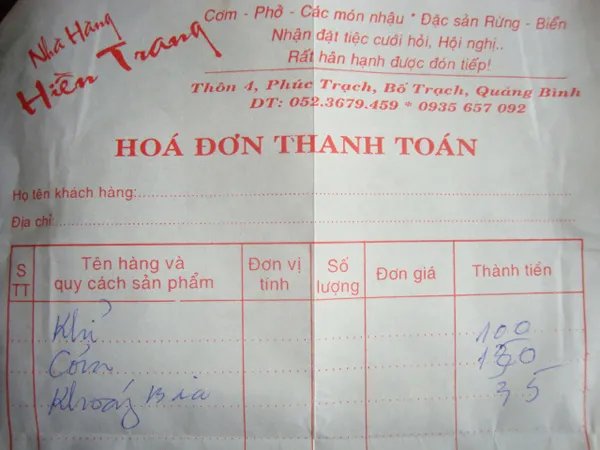 Nhà Hàng
Hiền Trang
Cơm - Phở - Các món nhậu * Đặc sản Rừng - Biển
Nhận đặt tiệc cưới hỏi, Hội nghị..
Rất hân hạnh được đón tiếp!
Thôn 4, Phúc Trạch, Bố Trạch, Quảng Bình
DT: 052.3679.459 * 0935 657 092
HOÁ ĐƠN THANH TOÁN
Họ tên khách hàng:
Địa chỉ:
S TT Tên hàng và quy cách sản phẩm Đơn vị tính Số lượng Đơn giá Thành tiền
Khỉ 100
Cơm
Khoáng Bia 35